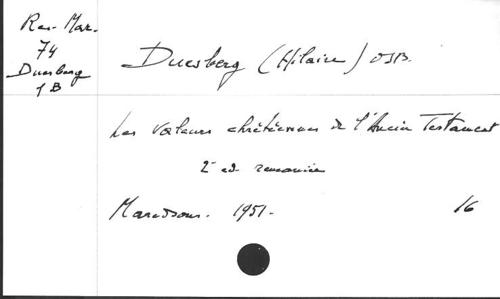 Res. Mar.
74
Duesberg
1 B
Duesberg (Hilaire) OSB.
Les Valeurs chrétiennes de l'Ancien Testament
2e ed.
Maredsous. 1951.
16